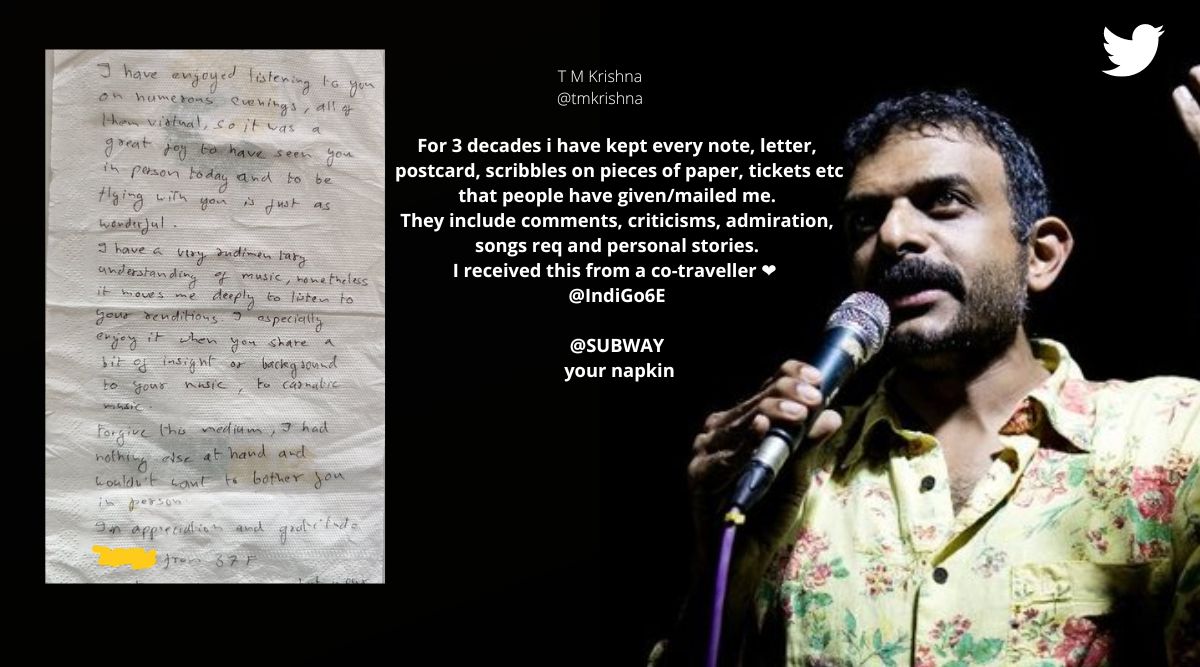 I have enjoyed listening to you
on numerous evenings, all of
them virtual, so it was a
great joy to have seen you
in person today and to be
flying with you is just as
wonderful.
I have a very rudimentary
understanding of music, nonetheless
it moves me deeply to listen to
your renditions. I especially
enjoy it when you share a
bit of insight or background
to your music, to carnatic
music.
Forgive this medium, I had
nothing else at hand and
wouldn't want to bother you
in person.
In appreciation and gratitude
from 37F
T M Krishna
@tmkrishna
For 3 decades i have kept every note, letter,
postcard, scribbles on pieces of paper, tickets etc
that people have given/mailed me.
They include comments, criticisms, admiration,
songs req and personal stories.
I received this from a co-traveller ❤
@IndiGo6E
@SUBWAY
your napkin